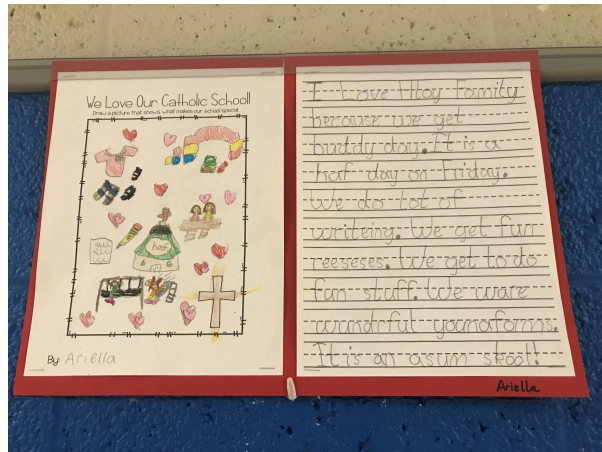 We Love Our Catholic School!
Draw a picture that shows what makes our school special
haf
By: Ariella
I Love Htoy Family
because we get
buddy day. It is a
haf day on Friday.
We do lot of
writeing. We get furr
reeseses. We get to do
fun stuff. We ware
wundrful younaforms.
It is an asum skool!
Ariella